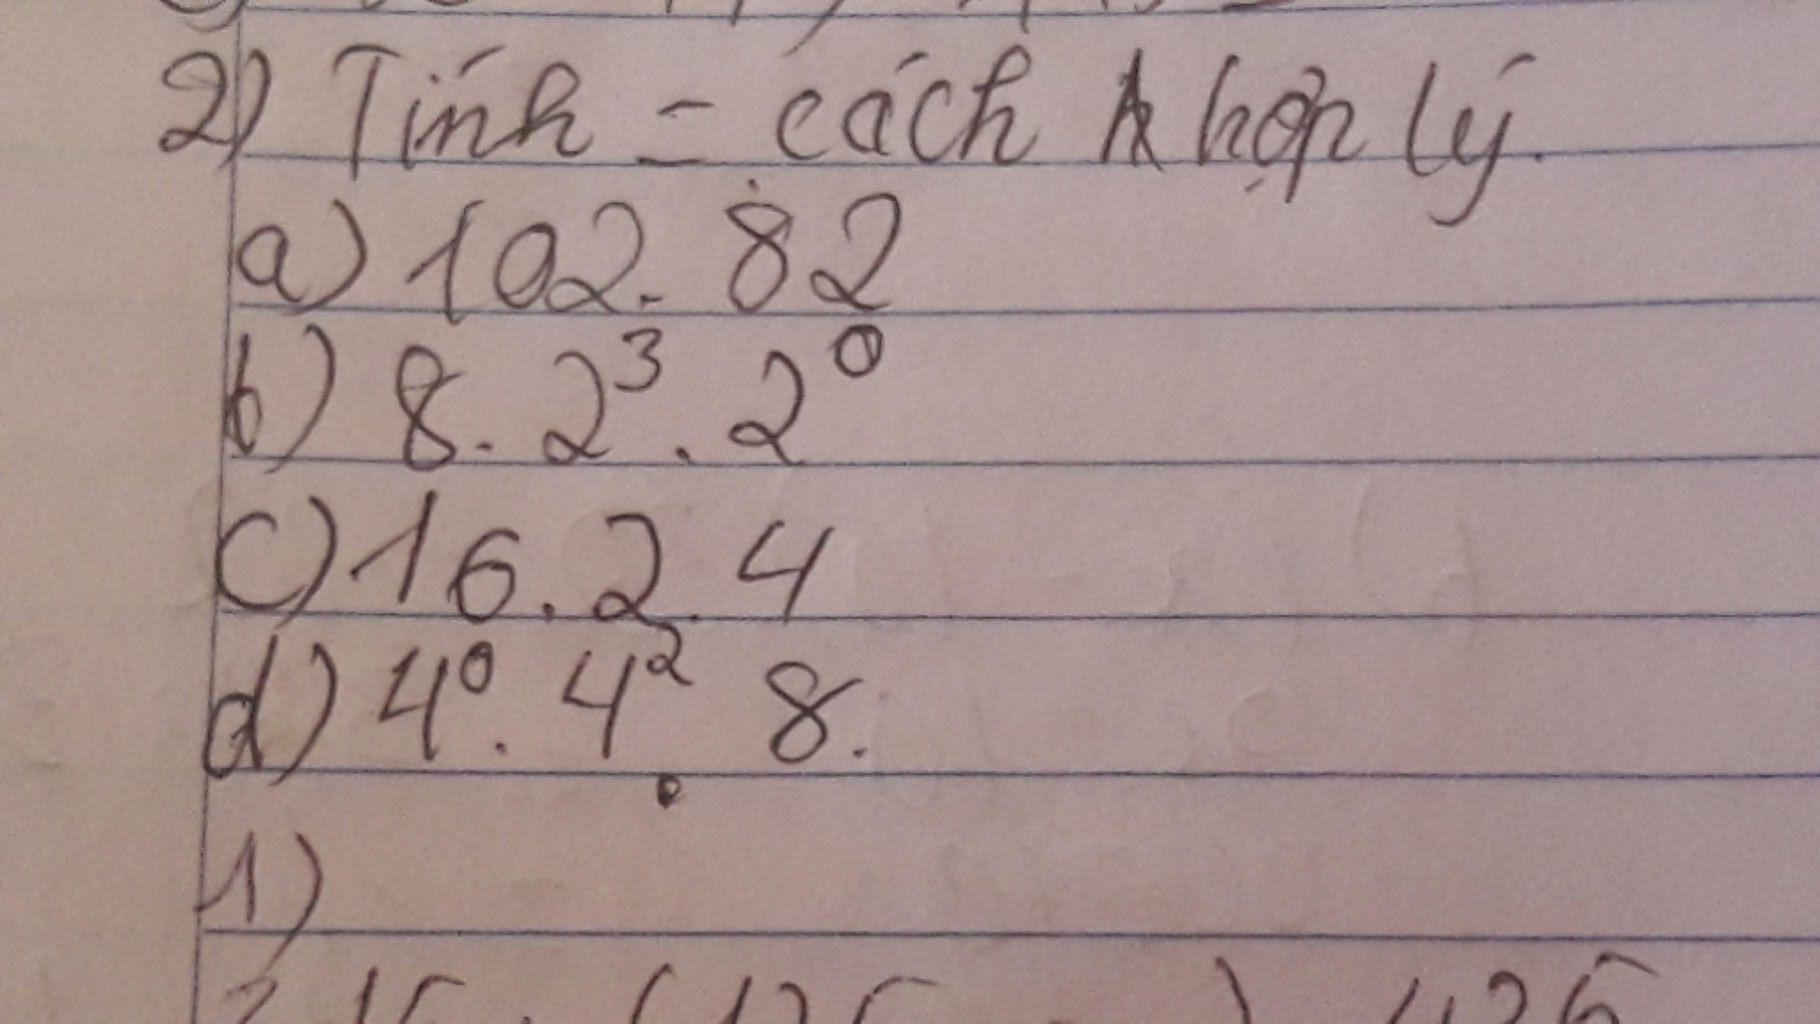 2) Tính = cách hợp lý.
a) 102. 82
b) 8. 2³ . 2⁰
c) 16 . 2. 4
d) 4⁰ . 4² . 8.
1)